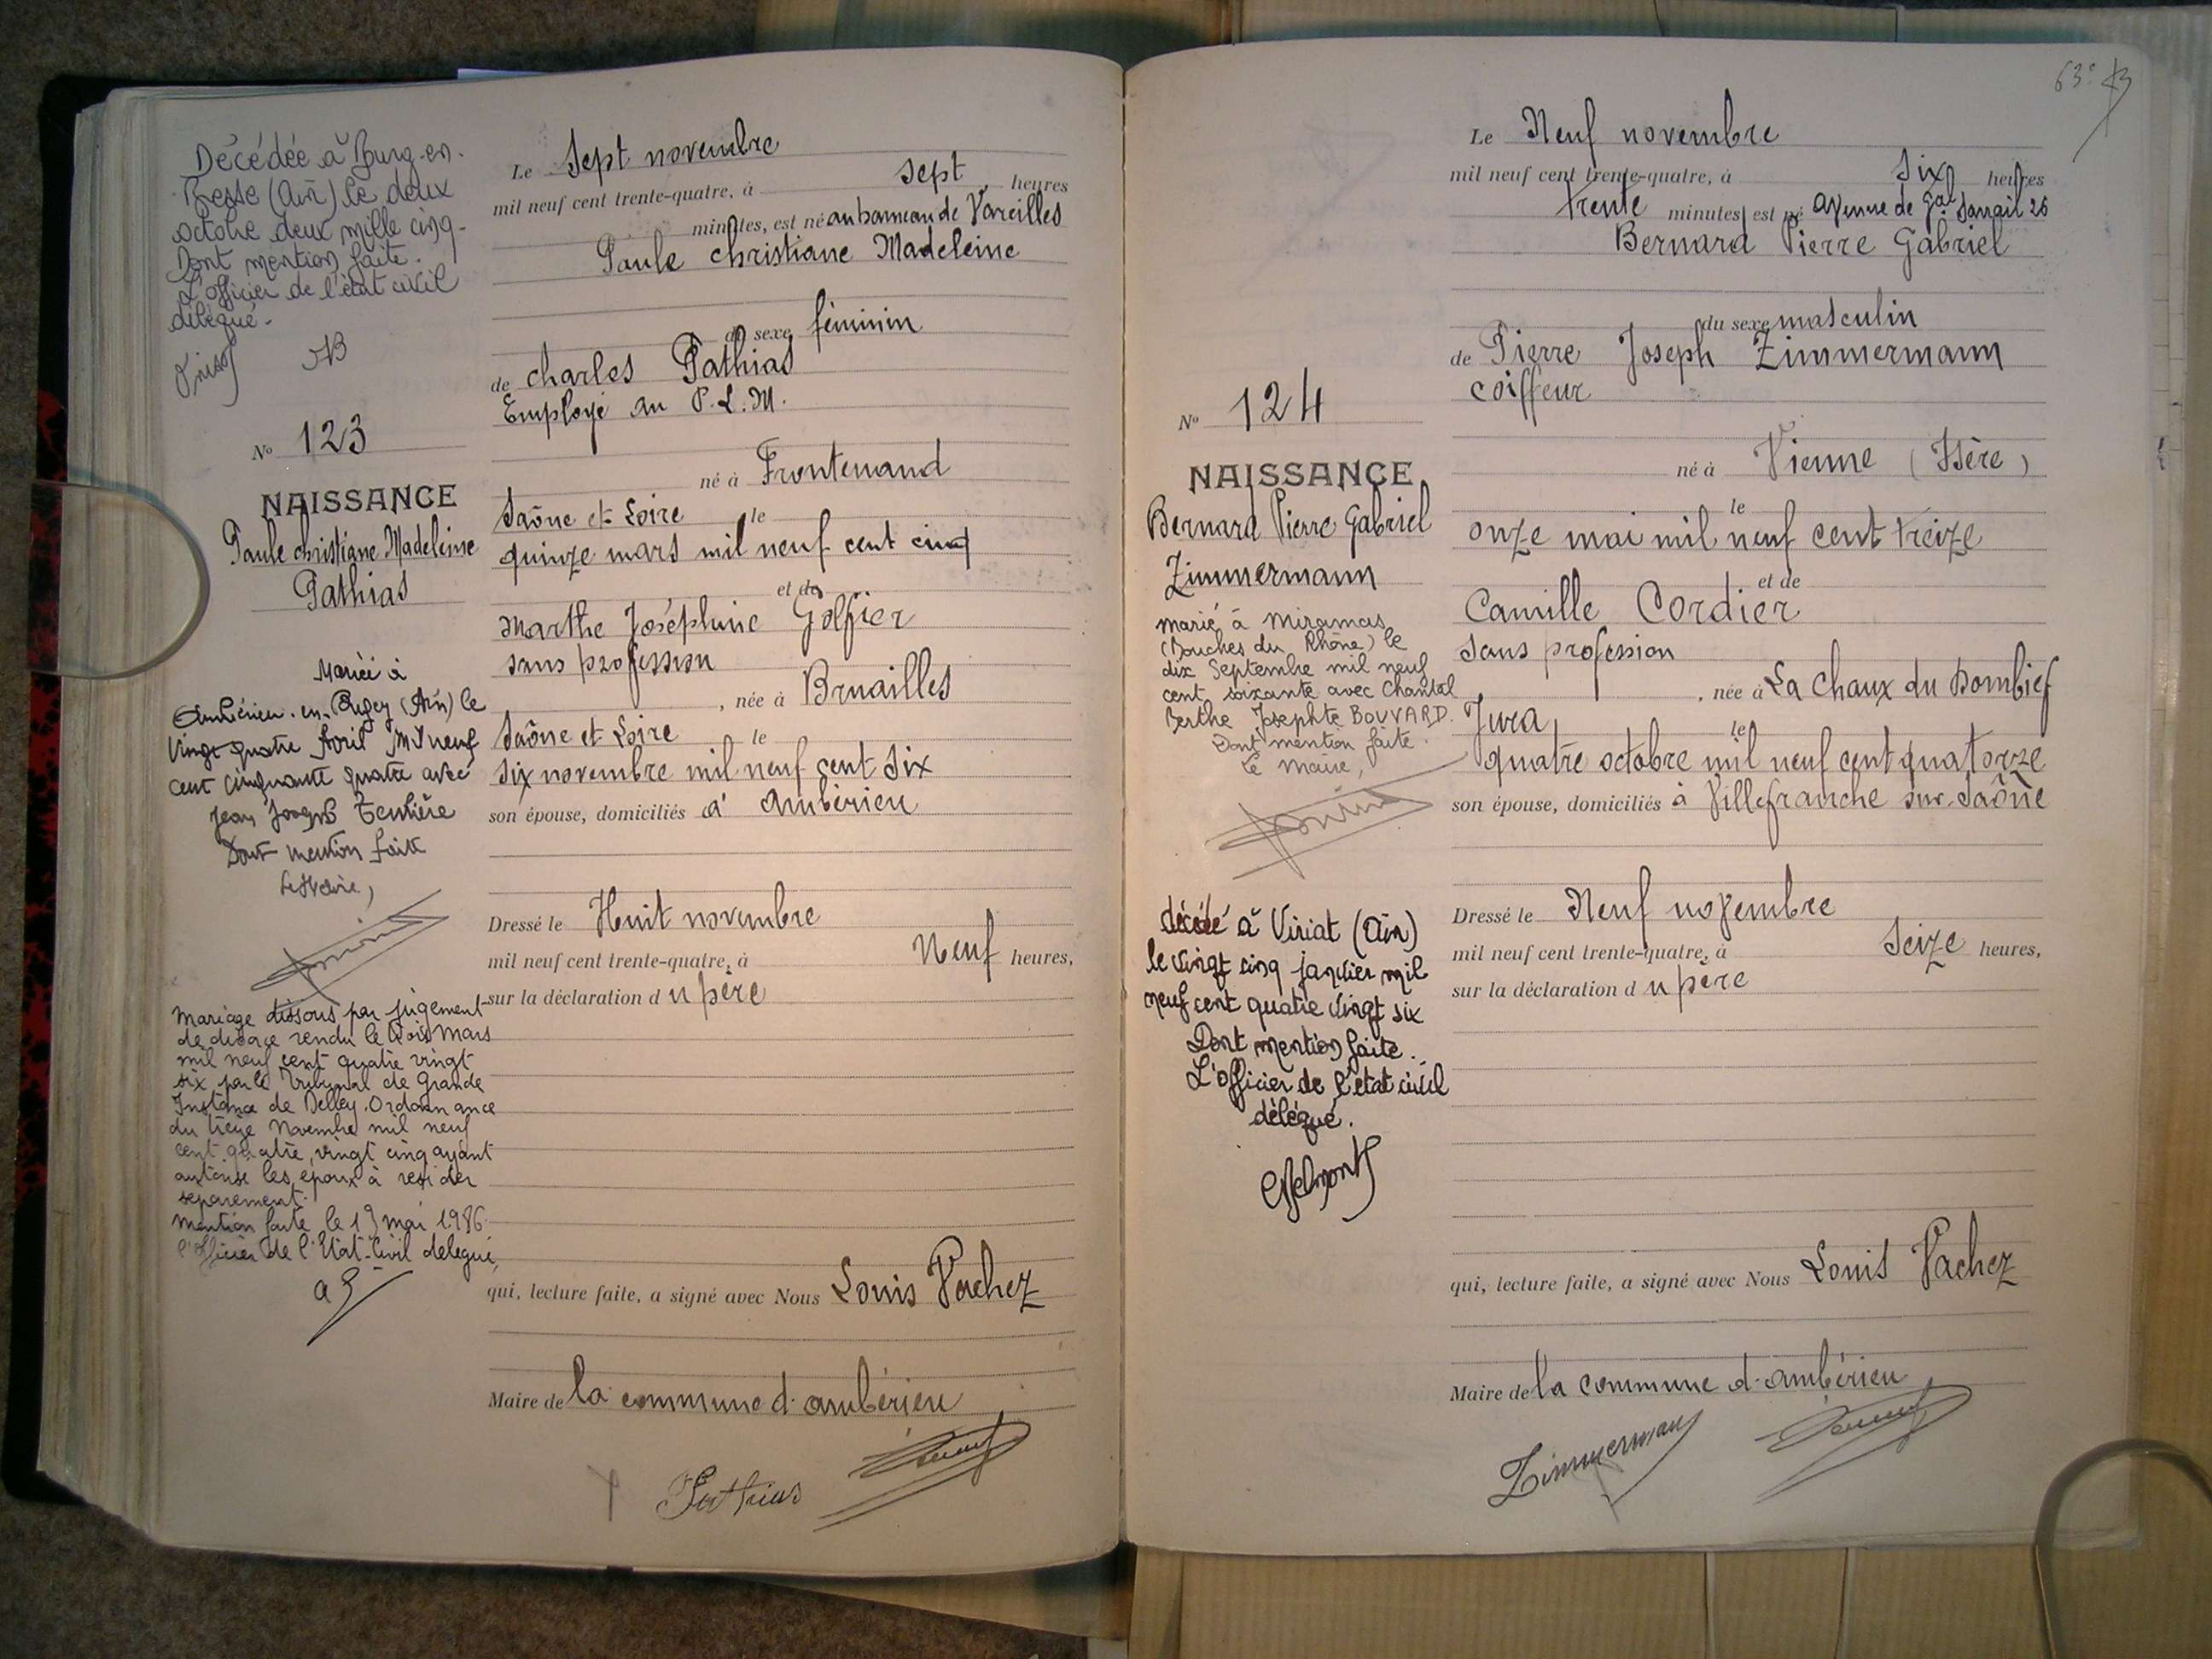 Décédée à Bourg-en-
Bresse (Ain) le deux
octobre deux mille cinq-
Dont mention faite.
L'officier de l'état civil
délégué-
N° 123
NAISSANCE
Paule Christiane Madeleine
Pathias
Mariée à
Ambérieu-en-Bugey (Ain) le
Vingt quatre Avril Mil neuf
cent cinquante quatre avec
Jean Joseph
Dont mention faite
Le Maire,
Mariage dissous par jugement
de divorce rendu le trois Mars
mil neuf cent quatre vingt
six par le Tribunal de Grande
Instance de Belley. Ordonnance
du treize Novembre mil neuf
cent quatre vingt cinq ayant
autorisé les époux à resider
separement.
Mention faite le 19 mai 1986
l'Officier de l'Etat-Civil delegué,
Le Sept novembre
mil neuf cent trente-quatre, à sept heures
minutes, est né au hameau de Vareilles
Paule Christiane Madeleine
du sexe féminin
de Charles Pathias
Employé au P.L.M.
né à Frontenaud
Saône et Loire le
quinze mars mil neuf cent cinq
et de
Marthe Joséphine Golfier
sans profession
, née à Bruailles
Saône et Loire le
six novembre mil neuf cent six
son épouse, domiciliés à Ambérieu
Dressé le Huit novembre
mil neuf cent trente-quatre, à Neuf heures,
sur la déclaration du père
qui, lecture faite, a signé avec Nous Louis Vachez
Maire de la commune d'Ambérieu
Pathias
63e
N° 124
NAISSANCE
Bernard Pierre Gabriel
Zimmermann
Marié à Miramas
(Bouches du Rhône) le
dix Septembre mil neuf
cent soixante avec Chantal
Berthe Josephte BOUVARD.
Dont mention faite.
Le Maire,
décédé à Viriat (Ain)
le vingt cinq janvier mil
neuf cent quatre vingt six
Dont mention faite.
L'officier de l'état civil
délégué.
Le Neuf novembre
mil neuf cent trente-quatre, à six heures
trente minutes, est né Avenue de Gal Sarrail 26
Bernard Pierre Gabriel
du sexe masculin
de Pierre Joseph Zimmermann
coiffeur
né à Vienne (Isère)
le
onze mai mil neuf cent treize
et de
Camille Cordier
sans profession
, née à La Chaux du Dombief
Jura le
quatre octobre mil neuf cent quatorze
son épouse, domiciliés à Villefranche sur Saône
Dressé le Neuf novembre
mil neuf cent trente-quatre, à Seize heures,
sur la déclaration du père
qui, lecture faite, a signé avec Nous Louis Vachez
Maire de la commune d'Ambérieu
Zimmermann